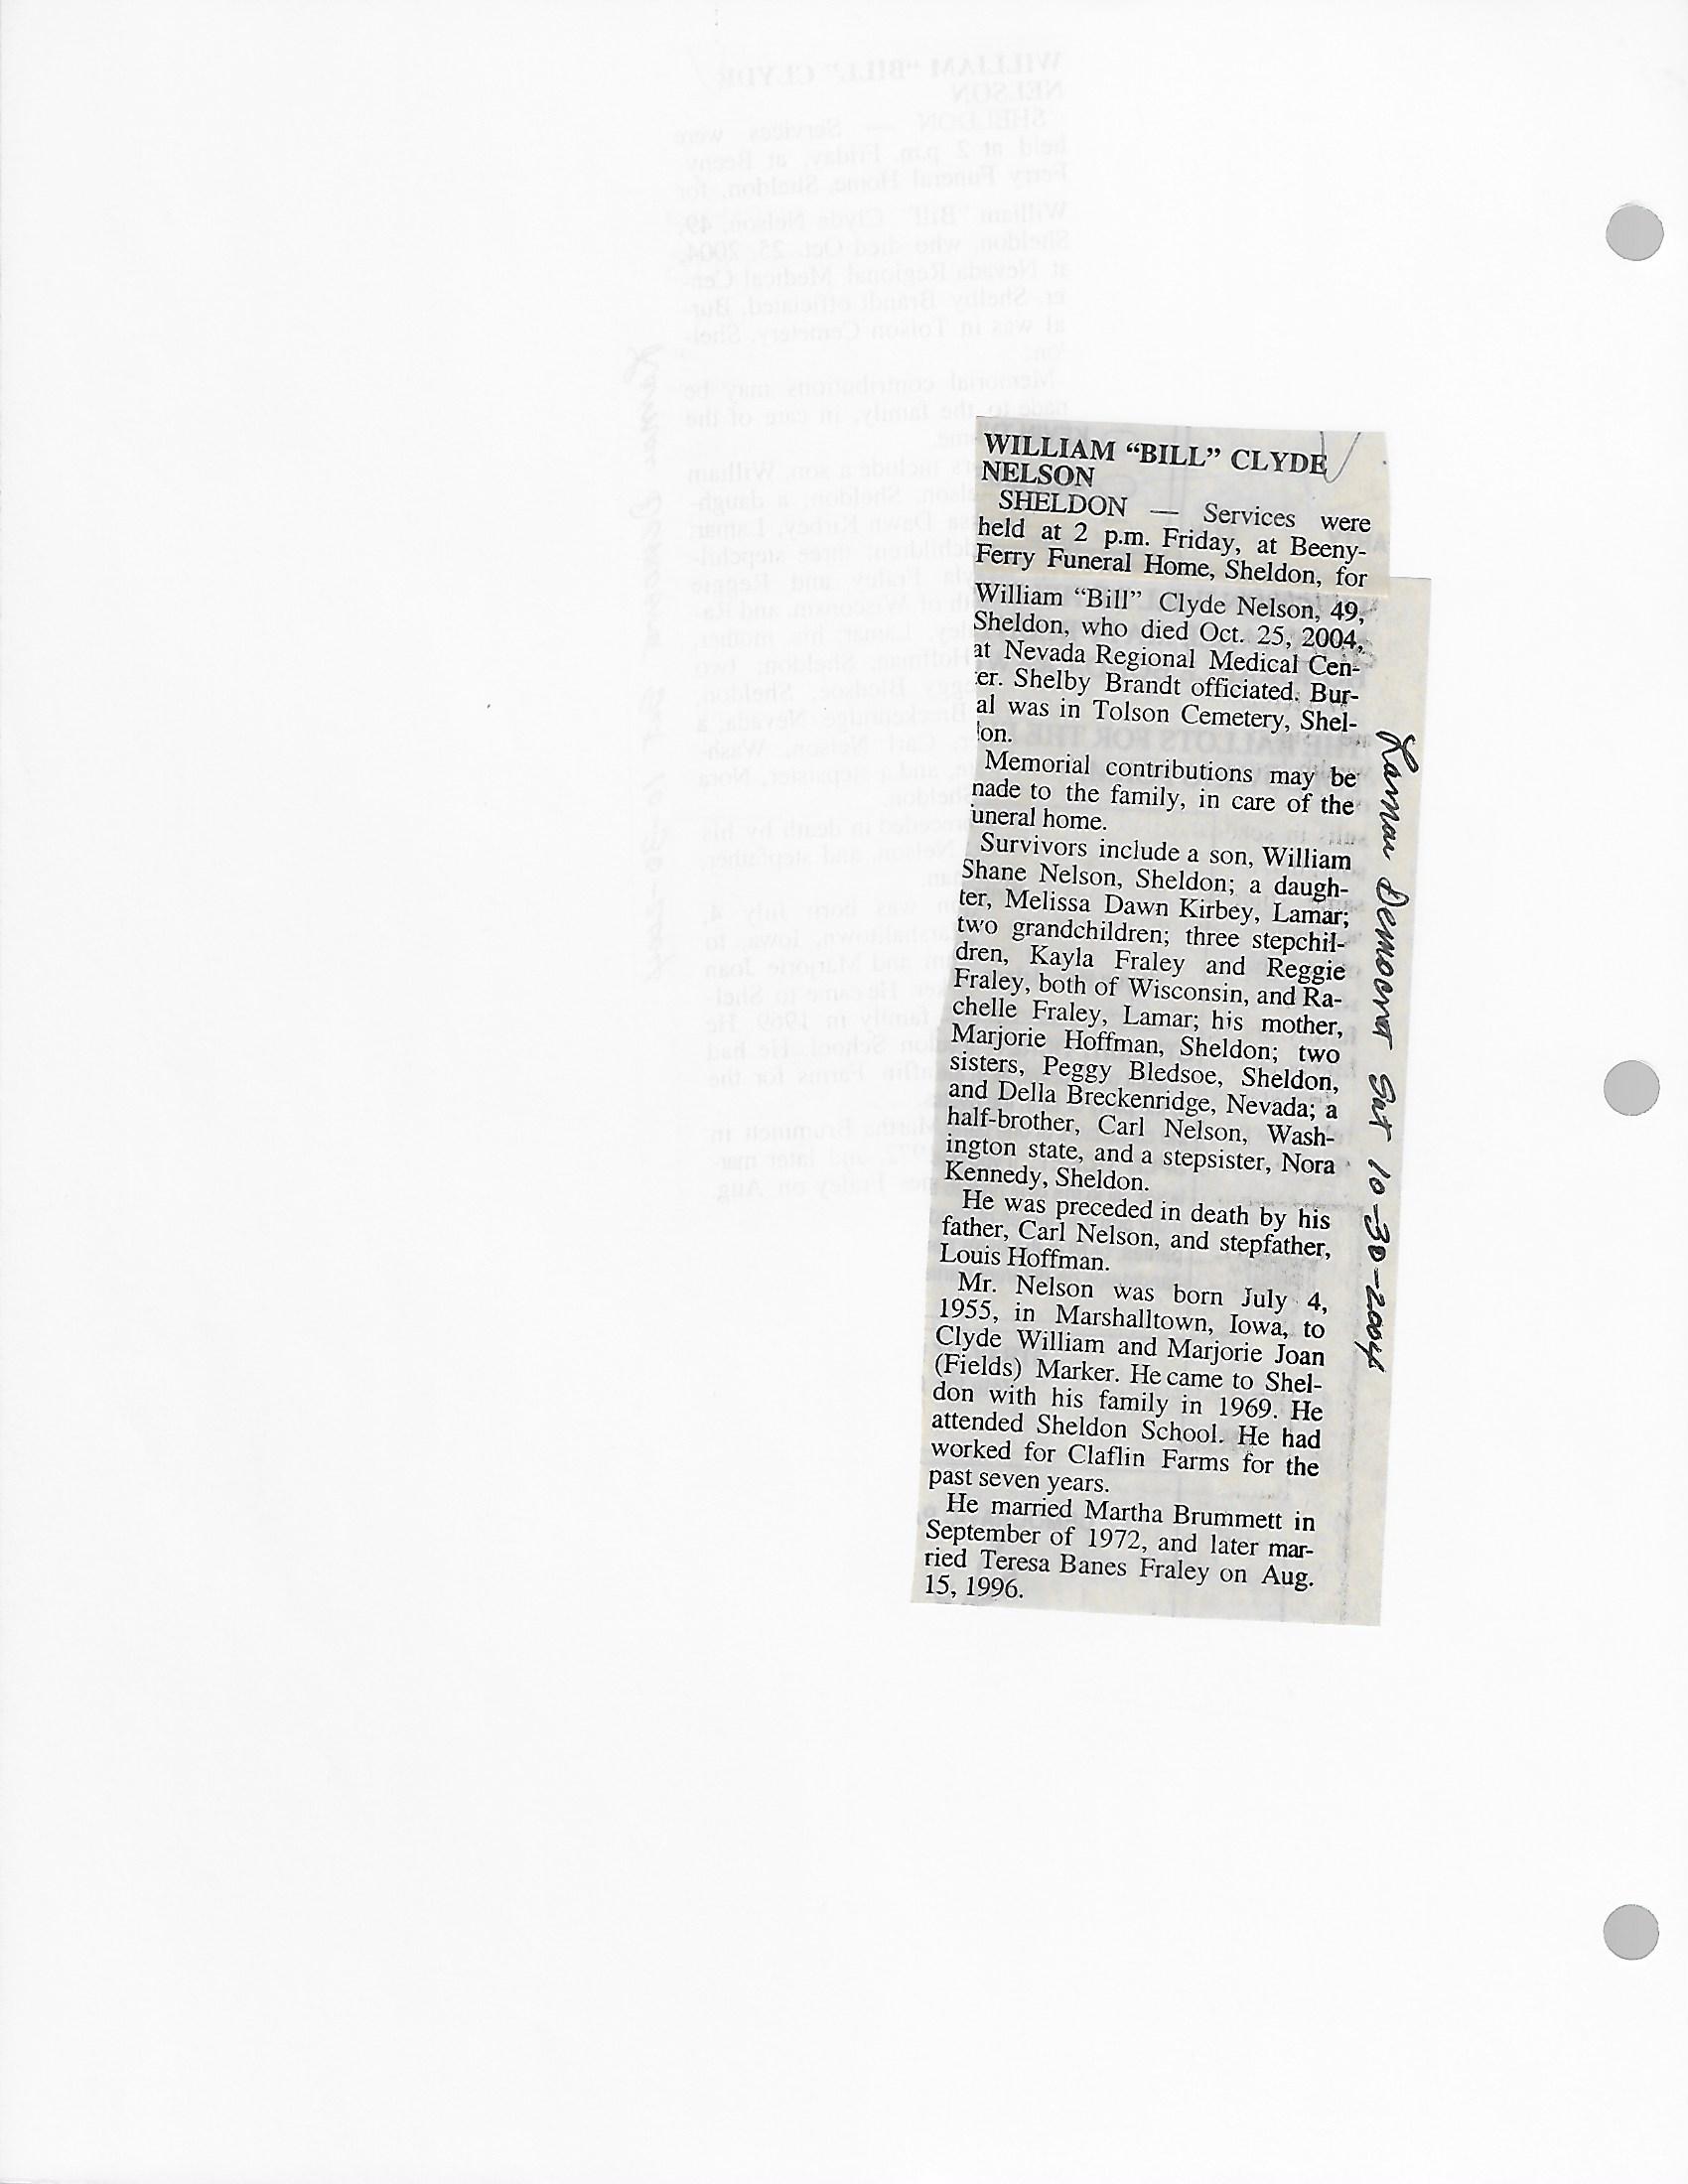 WILLIAM “BILL” CLYDE
NELSON
SHELDON — Services were
held at 2 p.m. Friday, at Beeny-
Ferry Funeral Home, Sheldon, for
William “Bill” Clyde Nelson, 49,
Sheldon, who died Oct. 25, 2004,
at Nevada Regional Medical Cen-
er. Shelby Brandt officiated. Bur-
al was in Tolson Cemetery, Shel-
on.
Memorial contributions may be
nade to the family, in care of the
uneral home.
Survivors include a son, William
Shane Nelson, Sheldon; a daugh-
ter, Melissa Dawn Kirbey, Lamar;
two grandchildren; three stepchil-
dren, Kayla Fraley and Reggie
Fraley, both of Wisconsin, and Ra-
chelle Fraley, Lamar; his mother,
Marjorie Hoffman, Sheldon; two
sisters, Peggy Bledsoe, Sheldon,
and Della Breckenridge, Nevada; a
half-brother, Carl Nelson, Wash-
ington state, and a stepsister, Nora
Kennedy, Sheldon.
He was preceded in death by his
father, Carl Nelson, and stepfather,
Louis Hoffman.
Mr. Nelson was born July 4,
1955, in Marshalltown, Iowa, to
Clyde William and Marjorie Joan
(Fields) Marker. He came to Shel-
don with his family in 1969. He
attended Sheldon School. He had
worked for Claflin Farms for the
past seven years.
He married Martha Brummett in
September of 1972, and later mar-
ried Teresa Banes Fraley on Aug.
15, 1996.
Lamar Democrat Sat 10-30-2004